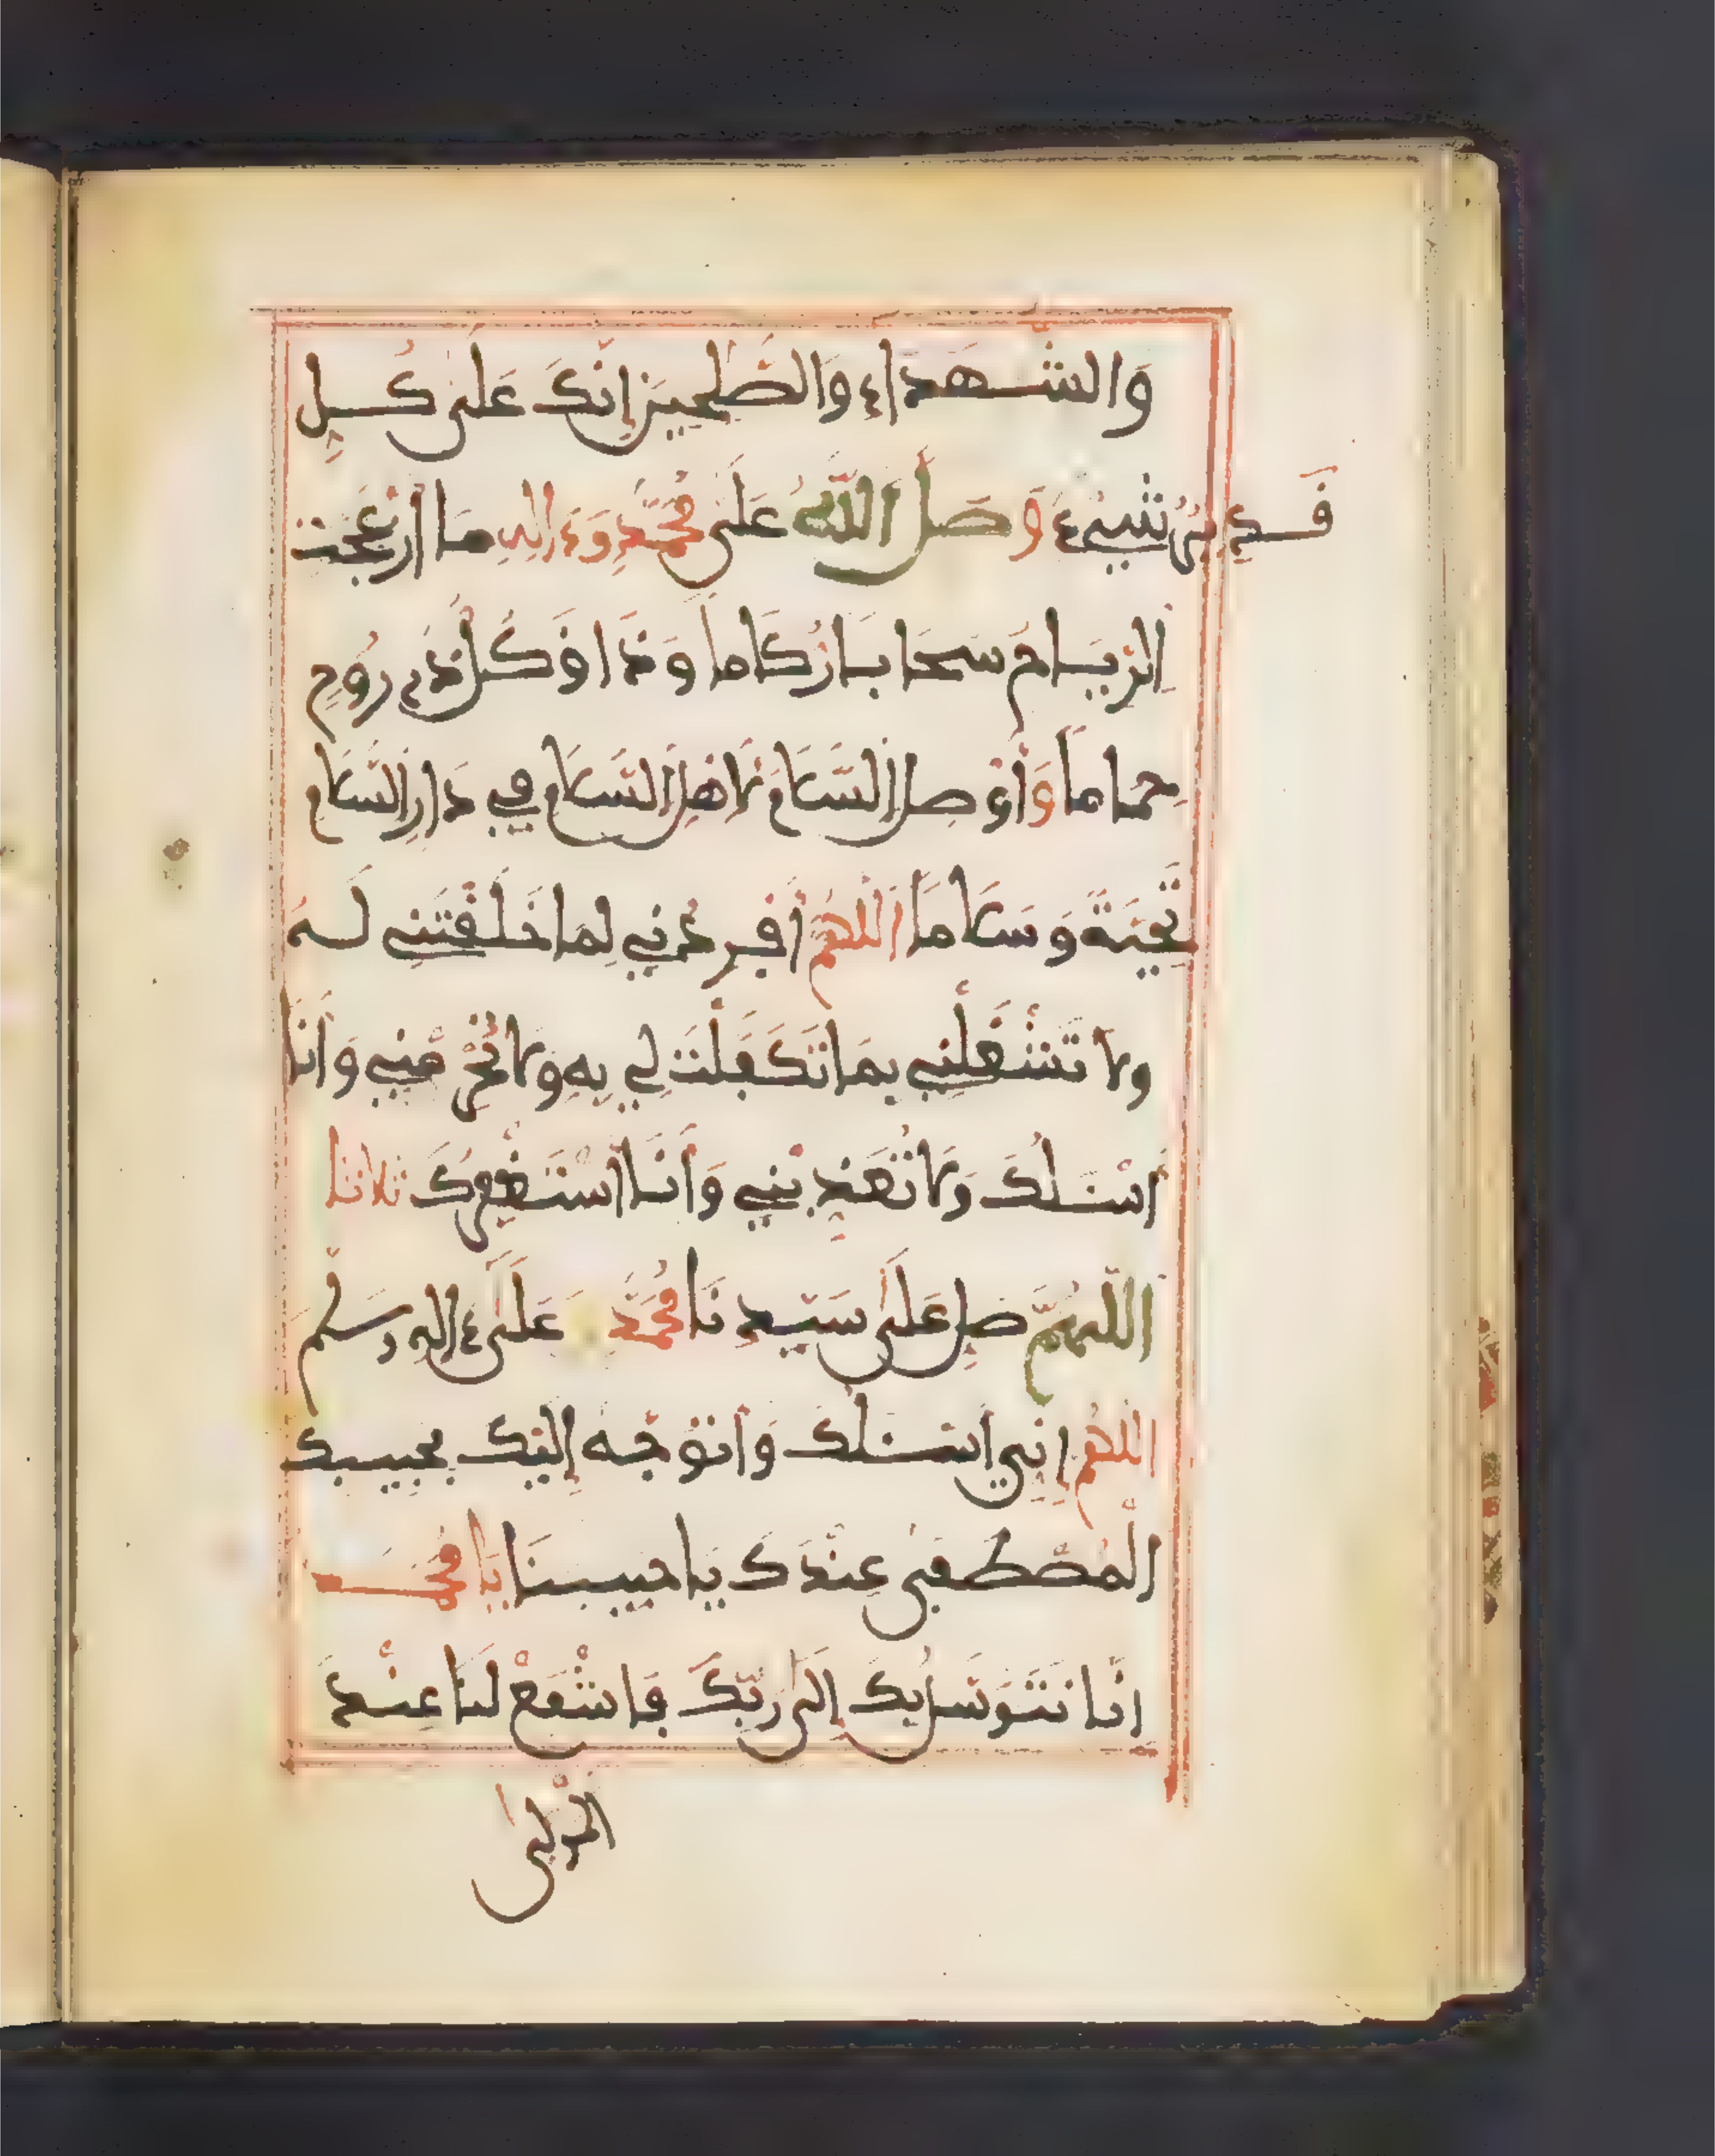 وَالشُّهَدَاءِ وَالصَّٰلِحِينَ إِنَّكَ عَلَىٰ كُلِّ
شَيْءٍ قَدِيرٌ وَصَلَّ اللَّهُ عَلَىٰ مُحَمَّدٍ وَءَالِهِ مَا ازْعَجَتِ
الرِّيَاحُ سَحَابًا رُكَامًا وَذَاقَ كُلُّ ذِي رُوحٍ
حِمَامًا وَأَوْصِلِ السَّلَامَ لِأَهْلِ السَّلَامِ فِي دَارِ السَّلَامِ
تَحِيَّةً وَسَلَامًا اللَّهُمَّ أَفْرِدْنِي لِمَا خَلَقْتَنِي لَهُ
وَلَا تَشْغَلْنِي بِمَا تَكَفَّلْتَ لِي بِهِ وَلَا تَحْرِمْنِي وَأَنَا
أَسْـَٔلُكَ وَلَا تُعَذِّبْنِي وَأَنَا أَسْتَغْفِرُكَ ثلاثا
اللَّهُمَّ صَلِّ عَلَىٰ سَيِّدِنَا مُحَمَّدٍ وَعَلَىٰ ءَالِهِ وَسَلِّمْ
اللَّهُمَّ إِنِّي أَسْـَٔلُكَ وَأَتَوَجَّهُ إِلَيْكَ بِحَبِيبِكَ
الْمُصْطَفَىٰ عِنْدَكَ يَا حَبِيبَنَا يَا مُحَمَّد
إِنَّا نَتَوَسَّلُ بِكَ إِلَىٰ رَبِّكَ فَاشْفَعْ لَنَا عِنْدَ
الْمَوْلَى